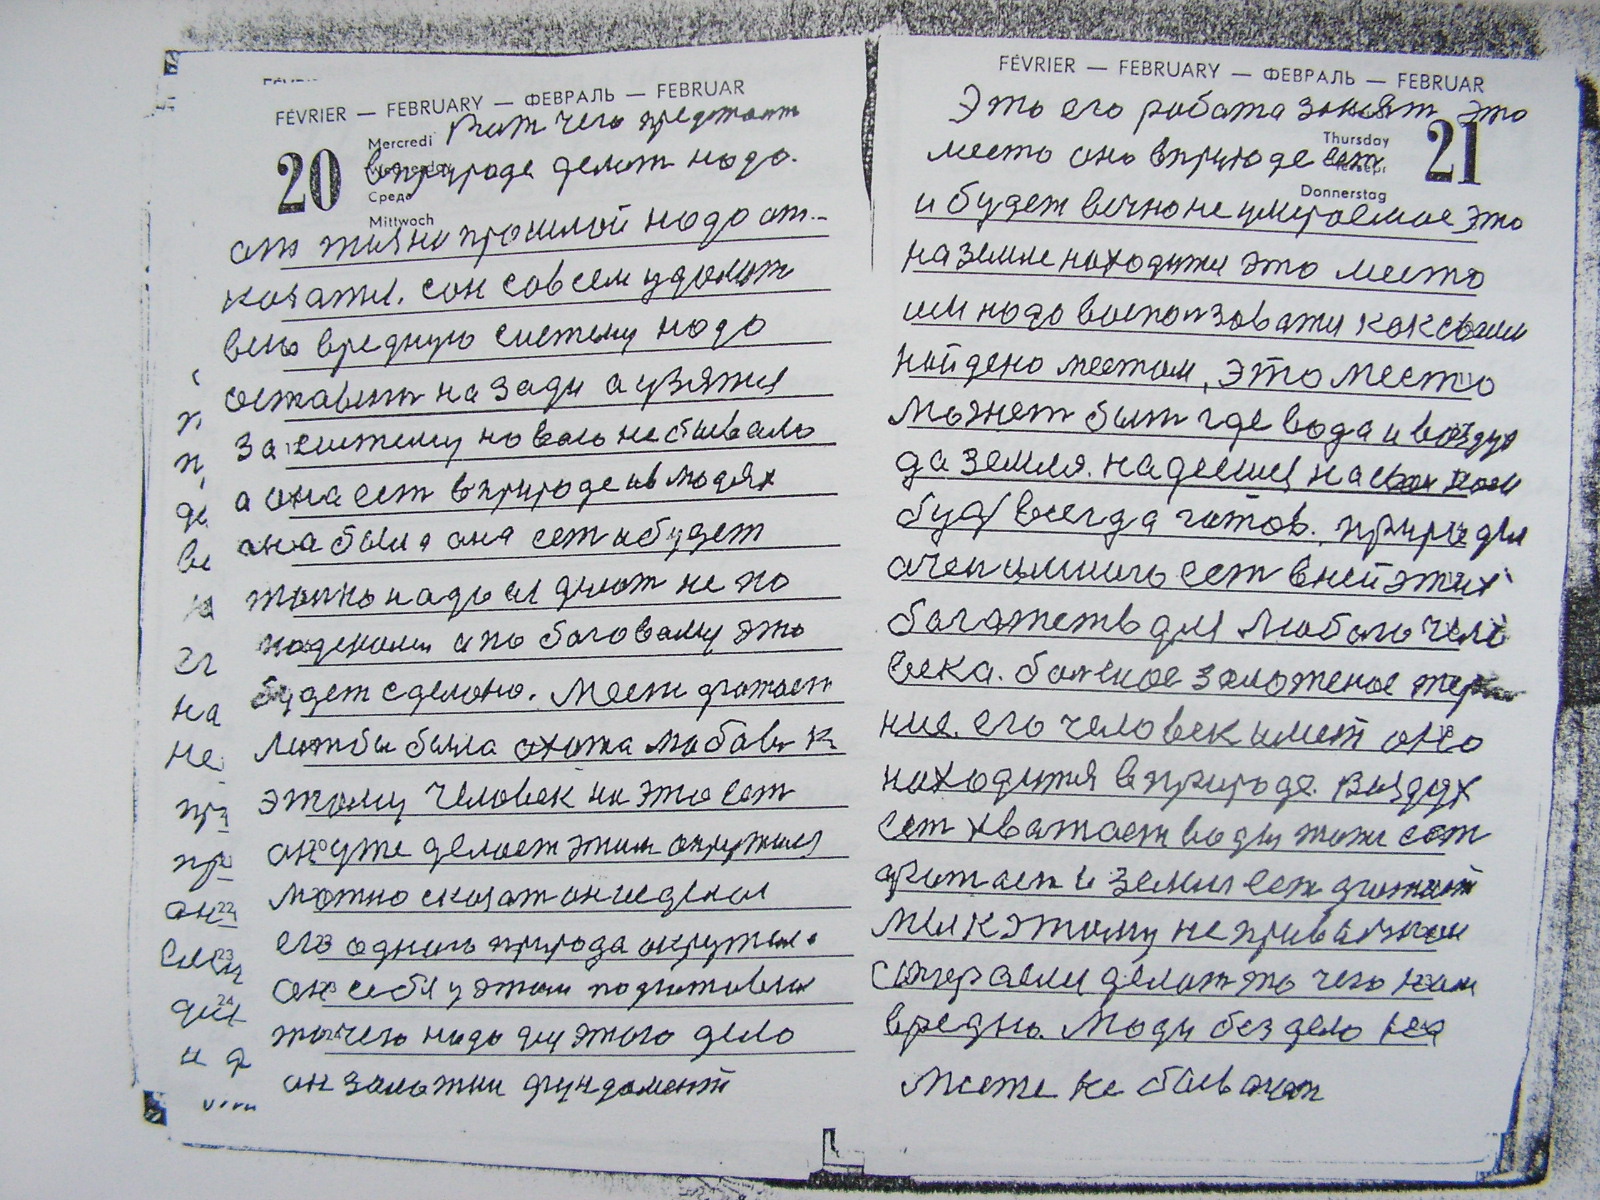 FÉVRIER — FEBRUARY — ФЕВРАЛЬ — FEBRUAR
20
Mercredi
Wednesday
Среда
Mittwoch
Вот чего предстоит
в природе делат надо.
от жизни прошлой надо от-
казатся. сон совсем удалит
всю вредную систему надо
оставит на зади а узятся
за систему новою небывалою
а она ест в природе и в людях
она была она ест и будет
толко надо ей делат не по
людскому а по боговому это
будет сделано. Мест хватает
лиш бы была охота любов к
этому человек на это ест
он уже делает этим окружился
можно сказат он не делал
его одного природа окружила
он себя у этом подготовил
то чего надо для этого дела
он заложил фундамент
FÉVRIER — FEBRUARY — ФЕВРАЛЬ — FEBRUAR
21
Thursday
Четверг
Donnerstag
Это его работа заимёт это
место оно в природе ест
и будет вечно не умираемое это
на земле находится это место
им надо воспользоватся как своим
найдено местом, это место
может быт где вода и воздух
да земля. надеешся на
буд всегда готов. природа
очен много ест в ней этих
богатств для любого чело
века. боленое заложеное терпе
ние. его человек имеет оно
находится в природе. Воздух
ест хватает воды тоже ест
фатает и земли ест хватает
мы к этому не привязаны
сами делат то чего нам
вредно. Люди без дела на
месте не бывают